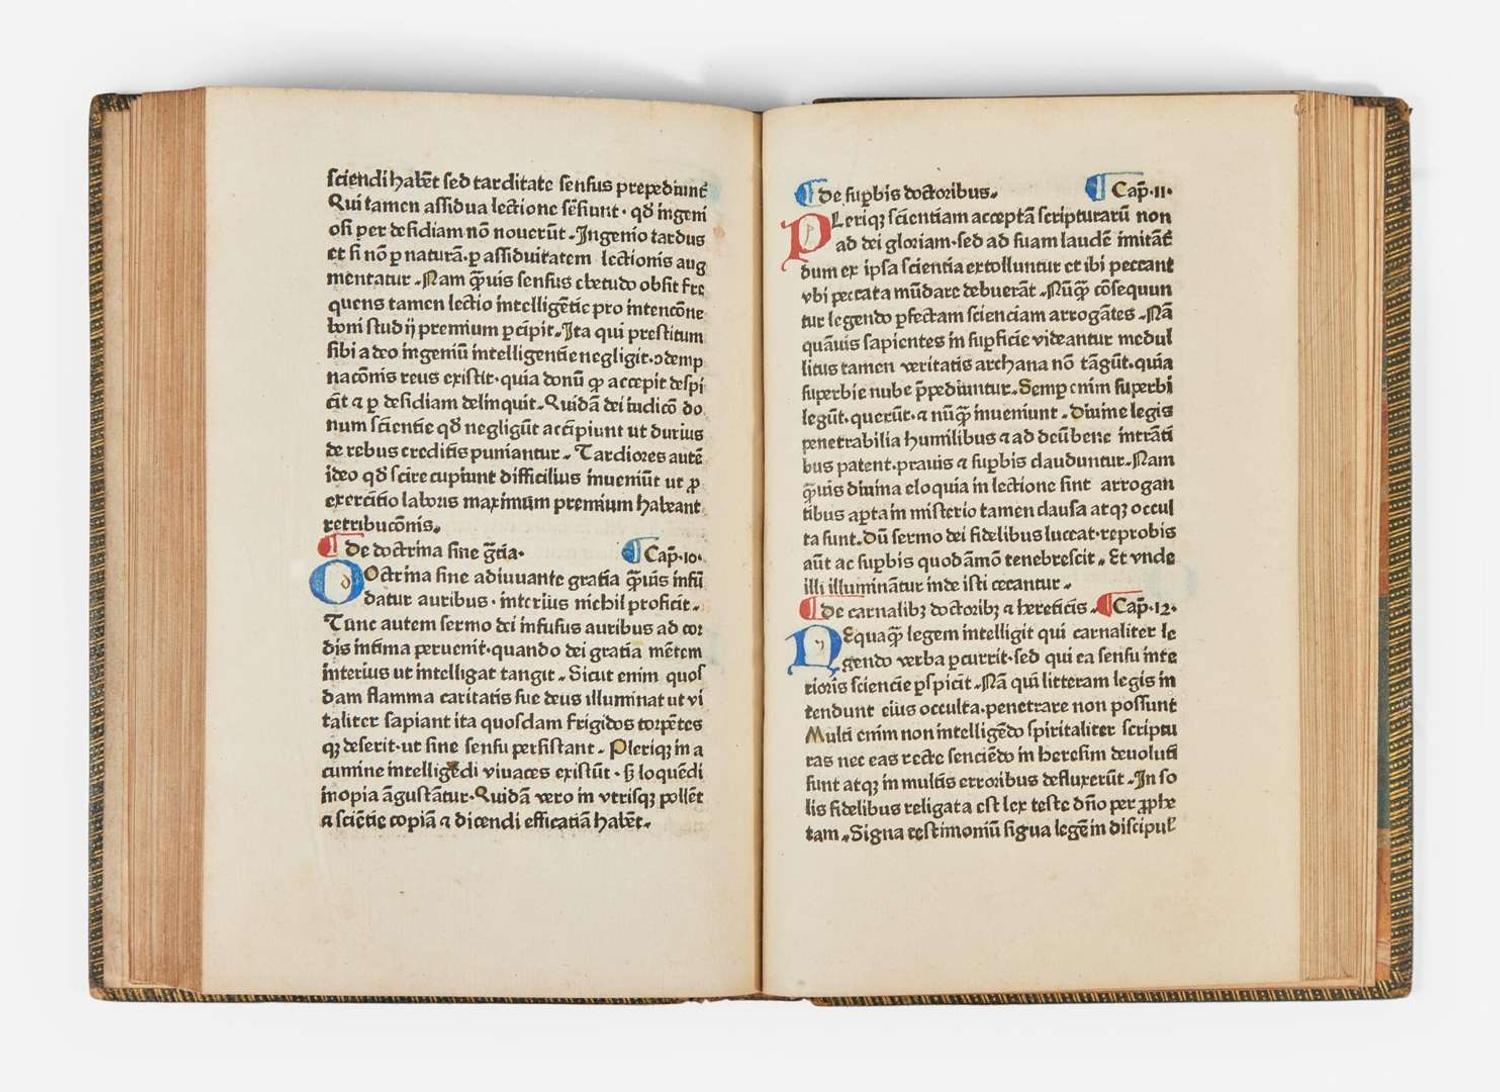 sciendi habēt sed tarditate sensus prepediunt̄
Qui tamen assidua lectione sēsiunt · qđ ingeni
osi per desidiam nō nouerūt . Ingenio tardus
et si nō ꝑ naturā · ꝑ assiduitatem lectionis aug
mentatur . Nam q̄uis sensus ebetudo obsit fre
quens tamen lectio intelligētie pro intencōne
boni studij premium ꝑcipit . Ita qui prestitum
sibi a deo ingeniū intelligentie negligit · ↄdemp
nacōnis reus existit · quia donū qp accepit despi
cit ⁊ ꝑ desidiam delinquit . Quidā dei iudicō do
num scientie qđ negligūt accipiunt ut durius
de rebus creditis puniantur . Tardiores autē
ideo qđ scire cupiunt difficilius inueniūt ut ꝓ
exercitio laboris maximum premium habeant
retribucōnis .
¶ de doctrina sine gr̄tia · ¶ Cap̄ · 10 ·
DOctrina sine adiuuante gratia q̄uis infū
datur auribus · interius nichil proficit .
Tunc autem sermo dei infusus auribus ad cor
dis intima peruenit · quando dei gratia mētem
interius ut intelligat tangit . Sicut enim quos
dam flamma caritatis sue deus illuminat ut vi
taliter sapiant ita quosdam frigidos torpētes
qꝫ deserit · ut sine sensu persistant . Pleriqꝫ in a
cumine intelligēdi viuaces existūt · sꝫ loquēdi
inopia āgustātur · Quidā vero in vtrisqꝫ pollēt
⁊ sciētie copiā ⁊ dicendi efficatiā habēt .
¶ de suꝑbis doctoribus . ¶ Cap̄ · 11 ·
PLeriqꝫ scientiam acceptā scripturarū non
ad dei gloriam · sed ad suam laudē imitāt̄
dum ex ipsa scientia extolluntur et ibi peccant
vbi peccata mūdare debuerāt . Nūq̄ cōsequun
tur legendo ꝑfectam scienciam arrogātes . Nā
quāuis sapientes in suꝑficie videantur medul
litus tamen veritatis archana nō tāgūt · quia
superbie nube p̄pediuntur . Semꝑ enim superbi
legūt · querūt · ⁊ nūq̄ inueniunt . Diuine legis
penetrabilia humilibus ⁊ ad deū bene intrāti
bus patent · prauis ⁊ suꝑbis clauduntur . Nam
q̄uis diuina eloquia in lectione sint arrogan
tibus aꝑta in misterio tamen clausa atqꝫ occul
ta sunt . Dū sermo dei fidelibus luceat · reprobis
aūt ac suꝑbis quodāmō tenebrescit . Et vnde
illi illuminātur inde isti cecantur .
¶ de carnalibꝫ doctoribꝫ ⁊ hereticis . ¶ Cap̄ · 12 ·
NEquaq̄ legem intelligit qui carnaliter le
gendo verba ꝑcurrit · sed qui ea sensu inte
rioris sciencie ꝑspicit . Nā qui litteram legis in
tendunt eius occulta · penetrare non possunt
Multi enim non intelligēdo spiritaliter scriptu
ras nec eas recte senciēdo in heresim deuoluti
sunt atqꝫ in multis erroribus defluxerūt . In so
lis fidelibus religata est lex teste dn̄o per ꝓphe
tam . Signa testimoniū signa legē in discipul'